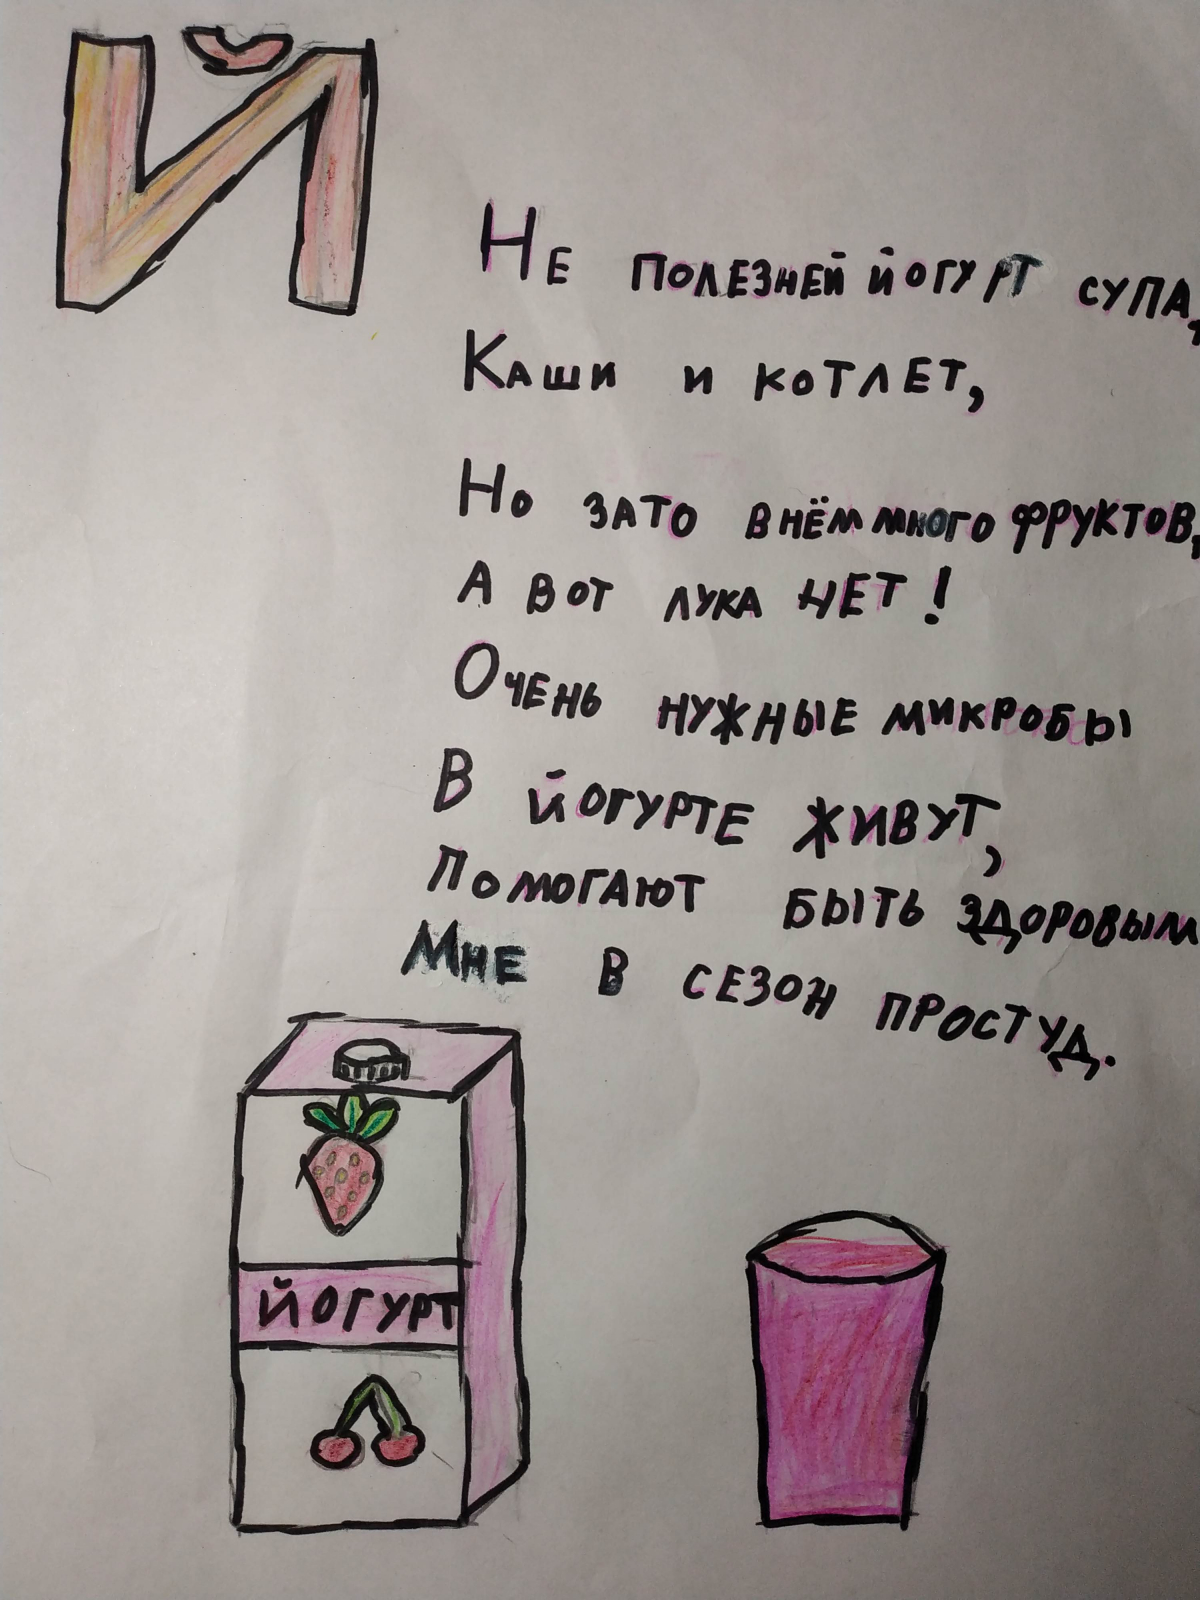 Й
Не полезней йогурт супа,
Каши и котлет,
Но зато в нём много фруктов,
А вот лука нет!
Очень нужные микробы
В йогурте живут,
Помогают быть здоровым
Мне в сезон простуд.
йогурт